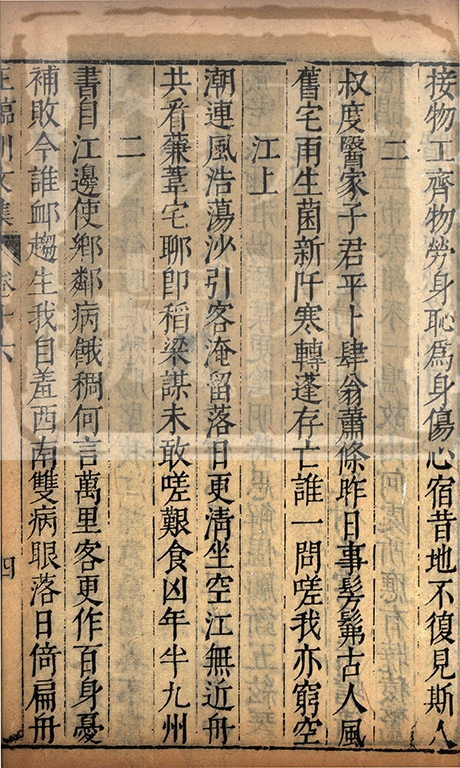 接物工齊物勞身恥爲身傷心宿昔地不復見斯人
二
叔度醫家子君平卜肆翁蕭條昨日事髣髴古人風
舊宅雨生菌新阡寒轉蓬存亡誰一問嗟我亦窮空
江上
潮連風浩蕩沙引客淹留落日更清坐空江無近舟
共看蒹葦宅聊卽稻粱謀未敢嗟艱食凶年半九州
二
書自江邊使鄉鄰病餓稠何言萬里客更作百身憂
補敗今誰䘏趨生我自羞西南雙病眼落日倚扁舟
王臨川文集 卷十六 四